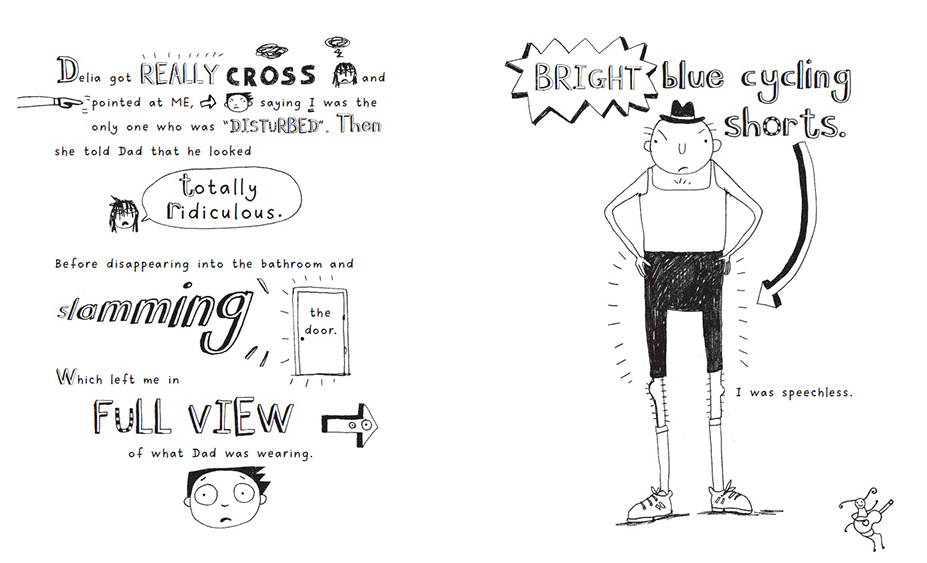 Delia got REALLY CROSS and
pointed at ME, saying I was the
only one who was "DISTURBED". Then
she told Dad that he looked
totally
ridiculous.
Before disappearing into the bathroom and
slamming
the
door.
Which left me in
FULL VIEW
of what Dad was wearing.
BRIGHT blue cycling
shorts.
I was speechless.